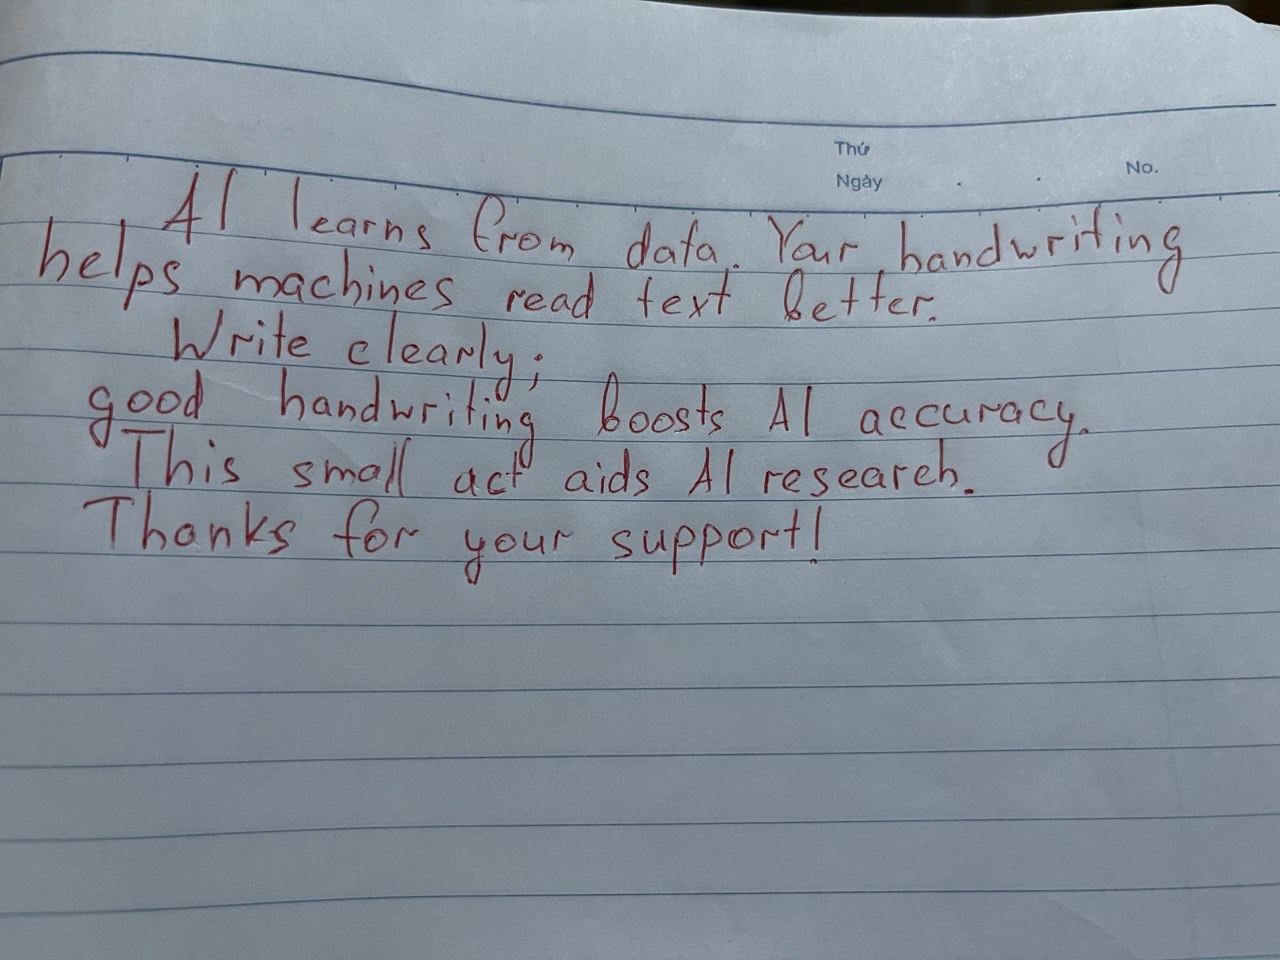 Thứ
Ngày . . No.
AI learns from data. Your handwriting
helps machines read text better.
Write clearly;
good handwriting boosts AI accuracy.
This small act aids AI research.
Thanks for your support!